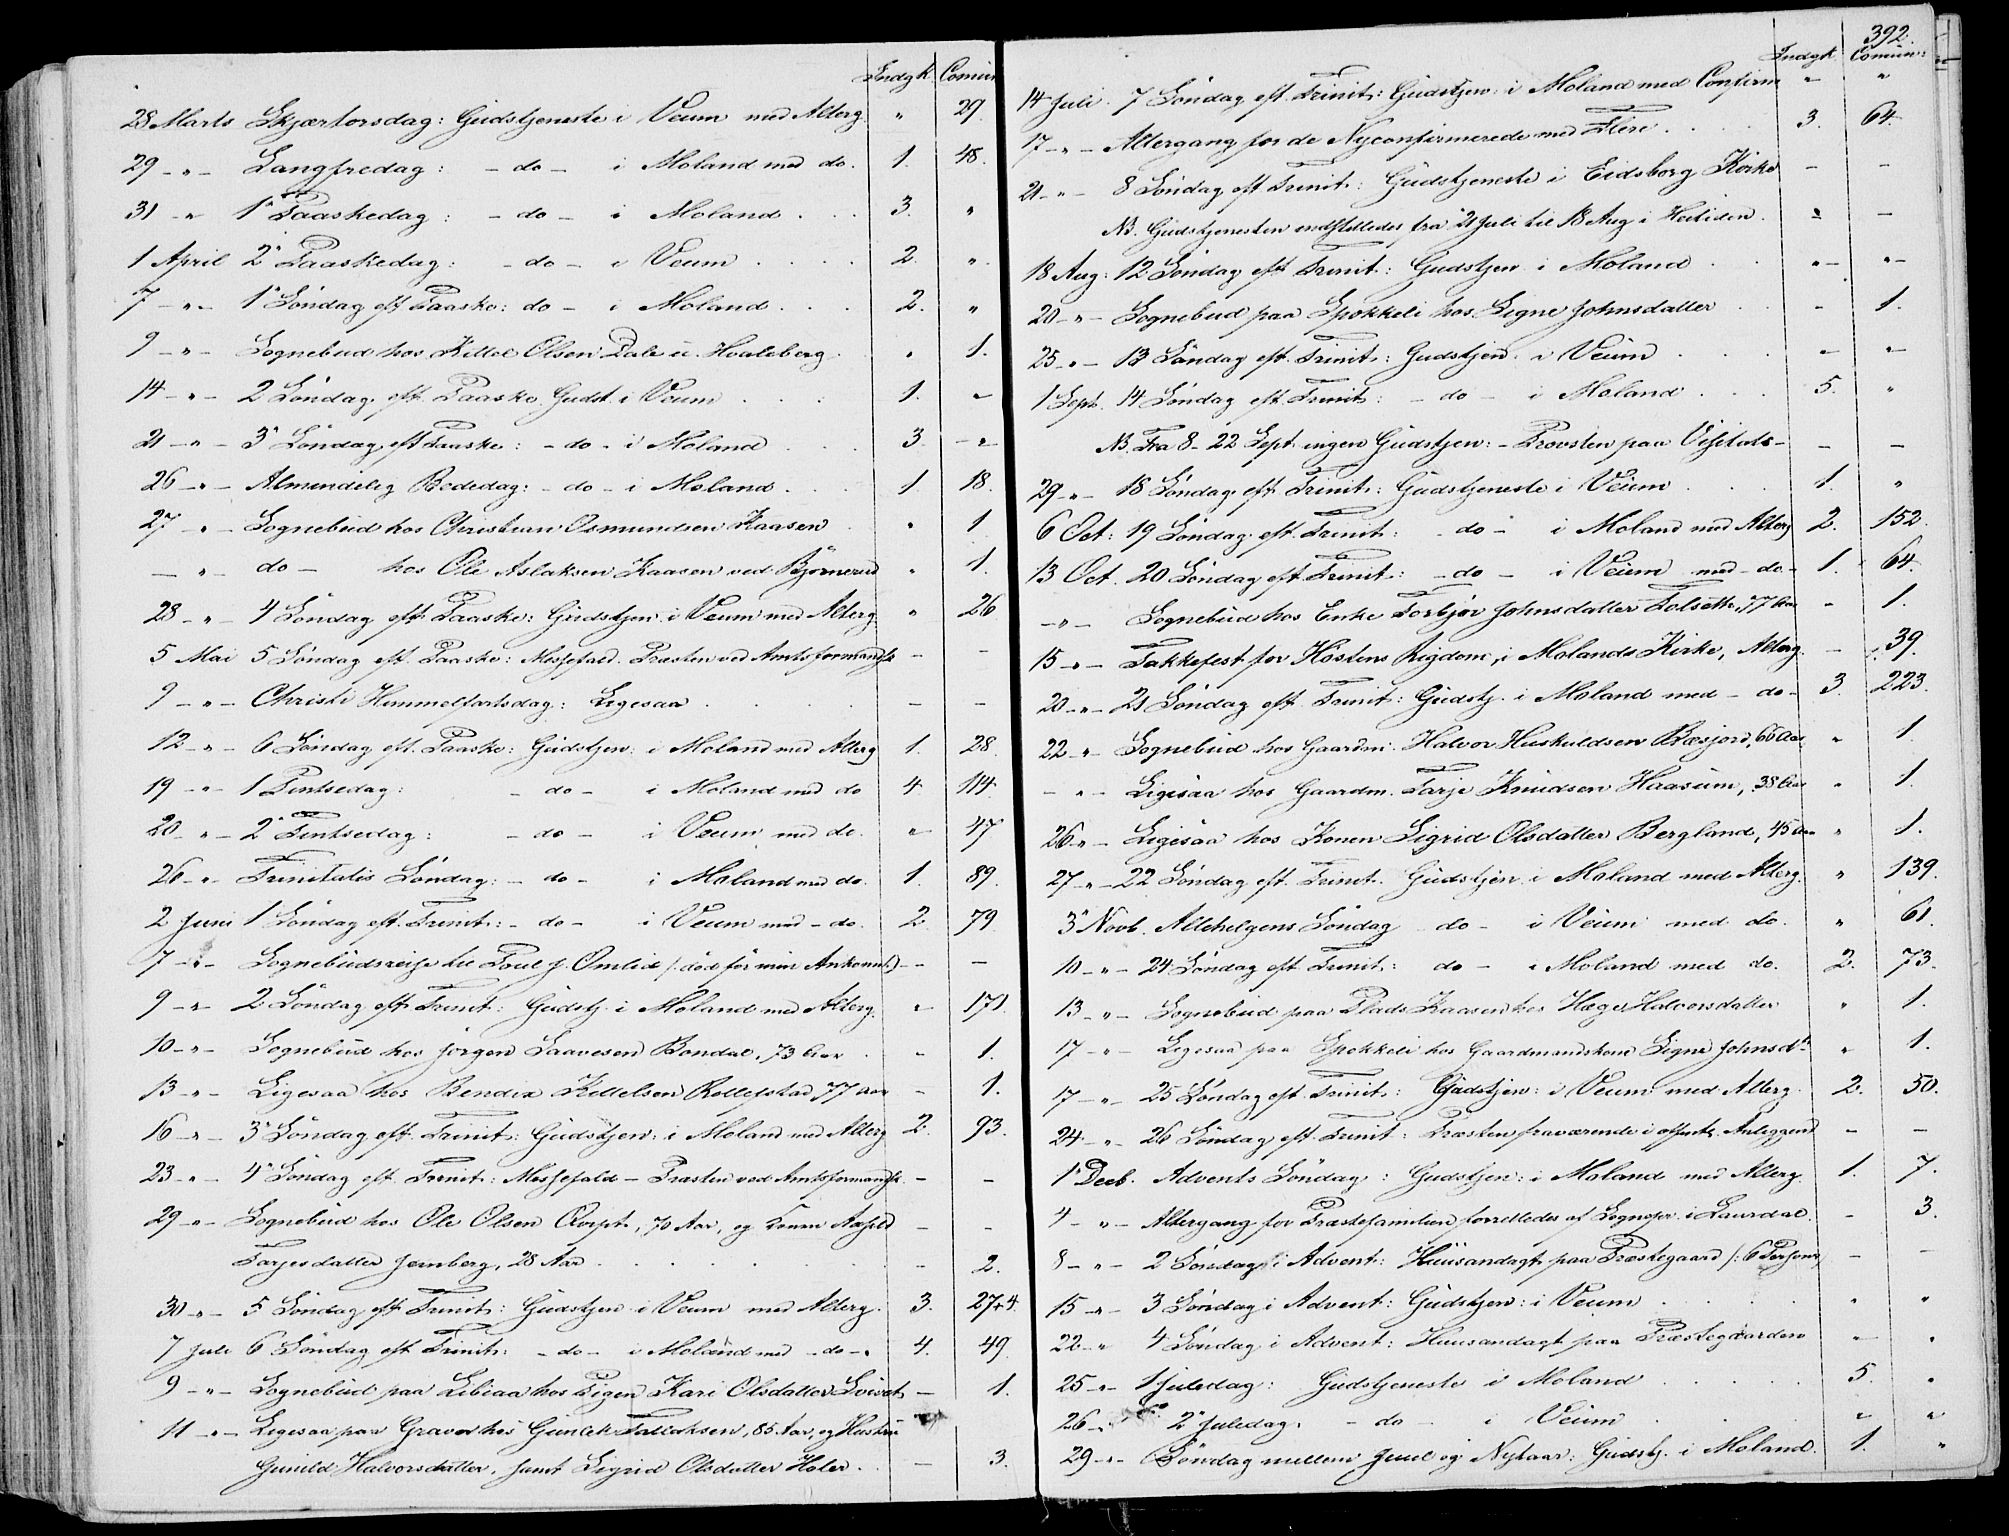 Indgk. Comün
28 Marts Skjærtorsdag: Gudstjeneste i Veum med Alterg. " 29.
29 -"- Langfredag: - do - i Moland med do. 1. 48.
31 -" 1ª Paaskedag: - do - i Moland . . . 3. "
1 April 2ª Paaskedag: - do - i Veum . . . . 2. "
7 -"- 1ª Søndag eft Paaske: do - i Moland . . . 2. "
9 -"- Sognebud hos Kittel Olsen Dale u. Hvaleberg . " 1.
14 -"- 2 Søndag eft. Paaske, Gudst i Veum . . . 1. -
21 -"- 3ª Søndag eft Paaske: - do - i Moland . . . 3. -"-
26 -"- Almindelig Bededag: - do - i Moland . . . 1 18.
27 " - Sognebud hos Christian Osmundsen Kaasen . " 1.
- " - do - hos Ole Aslaksen Kaasen ved Bjørnerud " 1.
28 -"- 4 Søndag eft Paaske: Gudstjen. i Veum med Alterg. " 26
5 Mai 5 Søndag eft. Paaske: Messefald. Præsten ved Amtsformandsk - -
9 -"- Christi Himmelfartsdag: Ligesaa . . . . - -
12 -"- 6 Søndag eft. Paaske: Gudstjen: i Moland med Alterg 1. 28.
19 -"- 1 Pintsedag: - do - i Moland med do 4. 114.
20 -"- 2ª Pintsedag: - do - i Veum med do. " 47
26 -"- Trinitatis Søndag: - do - i Moland med do. 1. 89.
2 Juni 1 Søndag eft. Trinit: - do - i Veum med - do. 2. 79.
7 -"- Sognebudsreise til Poul J. Omlid (: død før min Ankomst) - -
9 -"- 2 Søndag eft Trinit: Gudstj. i Moland med Alterg. " 171.
10 -"- Sognebud hos Jørgen Saavesen Bondal, 73 Aar . - 1.
13 -"- Ligesaa hos Bendix Kittelsen Rollefstad, 77 aar - 1.
16 -"- 3ª Søndag eft. Trinit: Gudstjen: i Moland med Alterg 2. 93.
23 -"- 4ª Søndag eft. Trinit: Messefald - Præsten ved Amtsformandsk. - -
29 -"- Sognebud hos Ole Olsen Qvipt, 70 Aar, og Konen Aasild - -
Tarjesdatter Jernberg, 28 Aar . . . . . - 2.
30 -"- 5 Søndag eft Trinit: Gudstjen i Veum med Alterg. 3. 27+4.
7 Juli 6 Søndag eft Trinit: - do - i Moland med - do - 4. 49.
9 -"- Sognebud paa Libiaa hos Pigen Kari Olsdatter - 1.
11 -"- Ligesaa paa Graver hos Gunlek Tallaksen, 85 Aar, og Hustru
Gunild Halvorsdatter, samt Sigrid Olsdatter Holer . - 3.
392.
Indgk. Comün:
14 Juli. 7 Søndag eft. Trinit: Gudstjen: i Moland med Confirm " "
17 -"- Altergang for de Nyconfirmerede med Flere . . . . 3. 64.
21 -"- 8 Søndag eft Trinit: Gudstjeneste i Eidsborg Kirke - -
NB. Gudstjenesten indstilledes fra 21 Juli til 18 Aug i Høitiden . - -
18 Aug: 12 Søndag eft Trinit: Gudstjen i Moland . . "- "-
20 -"- Sognebud paa Spokkeli hos Signe Johnsdatter . . - 1.
25 -"- 13 Søndag eft. Trinit: Gudstjen: i Veum . . . - "-
1 Sept. 14 Søndag eft. Trinit: - do - i Moland . . . 5. "
NB. Fra 8 - 22 Sept ingen Gudstjen: - Provsten paa Visitats - - -
29 -"- 18 Søndag eft Trinit: Gudstjeneste i Veum . . . 1. "
6 Oct: 19 Søndag eft Trinit: - do - i Moland med Alterg 2. 152.
13 Oct. 20 Søndag eft. Trinit: - do - i Veum med - do - 1. 64.
-"- Sognebud hos Enke Torbjør Johnsdatter , 77 Aar - 1.
15 -"- Takkefest for Høstens Rigdom, i Molands Kirke, Alterg. - 39.
20 -"- 21 Søndag eft. Trinit: Gudstj. i Moland med - do - 3. 223.
22 -"- Sognebud hos Gaardm. Halvor Huskuldsen Bæsjord, 66 Aar " 1.
-"- Ligesaa hos Gaardm. Tarje Knudsen Haasum, 38 Aar " 1.
26 -"- Ligesaa hos Konen Sigrid Olsdatter Bergland, 45 Aar " 1.
27 -"- 22 Søndag eft. Trinit. Gudstjen i Moland med Alterg. " 139.
3ª Novb. Allehelgens Søndag do - i Veum med do. " 61.
10 -"- 24 Søndag eft. Trinit: do - i Moland med do. 2. 73.
13 -"- Sognebud paa Plads Kaasen hos Hæge Halvorsdatter " 1.
17 -"- Ligesaa paa Spokkeli hos Gaardmandskone Signe Johnsdtr " 1.
17 -"- 25 Søndag eft. Trinit: Gudstjen: i Veum med Alterg. 2. 50.
24 -"- 26 Søndag eft. Trinit: Præsten fraværende i offentl. Anliggend - -
1ª Decb. Advents Søndag: Gudstjen: i Moland med Alterg. 1. 7.
4 -"- Altergang for Præstefamilien forrettedes af Sognepr. i Laurdal. - 3.
8 -"- 2 Søndag i Advent: Huusandagt paa Præstegaard (: 6 Personer) - -
15 -"- 3 Søndag i Advent: Gudstjen: i Veum . . . . " "
22 -" 4 Søndag i Advent: Huusandagt paa Præstegaarden " "
25 -"- 1 Juledag: Gudstjeneste i Moland . . . . . 5. "
26 -"- 2ª Juledag. - do - i Veum . . . " "
29 -"- Søndag mellem Juul og Nytaar: Gudstj. i Moland. 1. "